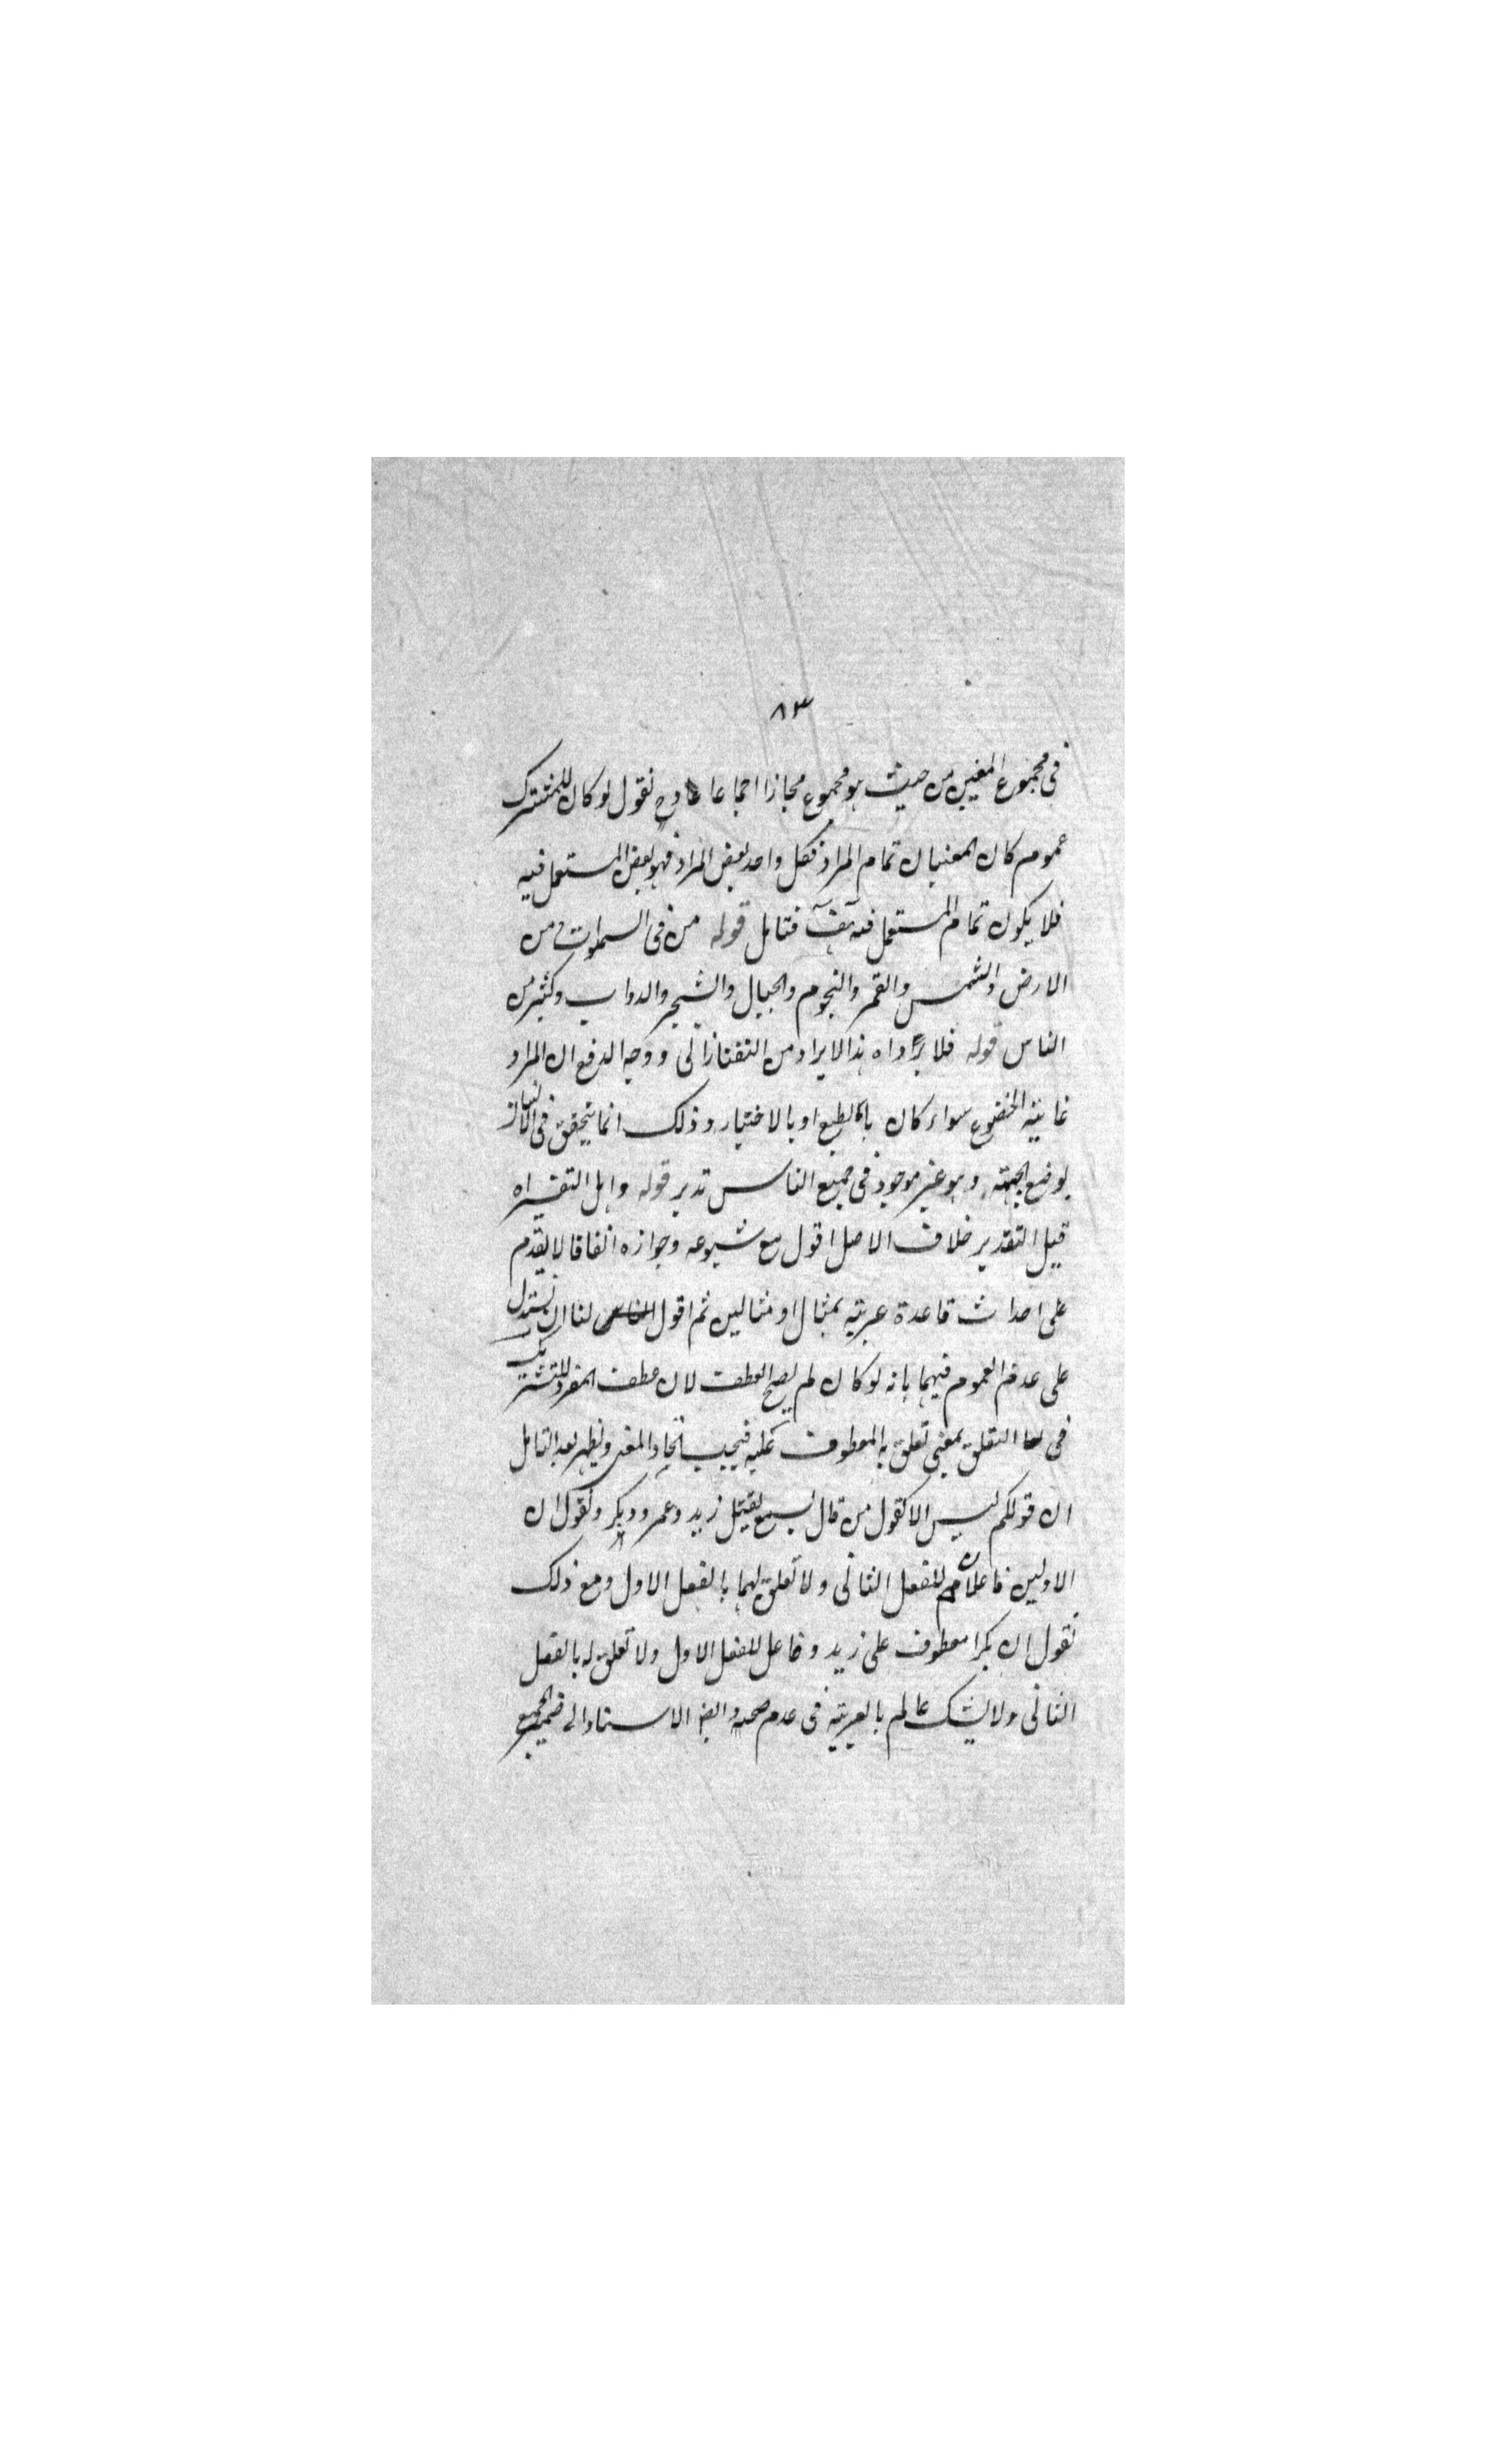 ٨٣
في مجموع المعنيين من حيث هو مجموع مجازا اجماعا وح نقول لو كان للمشترك
عموم كان المعنيان تمام المراد فكل واحد بعض المراد فهو بعض المستعمل فيه
فلا يكون تمام المستعمل فيه هف فتامل قوله من في السموات من
الارض والشمس والقمر والنجوم والجبال والشجر والدواب وكثير من
الناس قوله فلا يراد اه هذا الايراد من التفتازاني ووجه الدفع ان المراد
غاية الخضوع سواء كان بالطبع او بالاختيار وذلك انما يتحقق في الانسان
بوضع الجبهة وهو غير موجود في جميع الناس تدبر قوله واهل التفسير اه
قيل التقدير خلاف الاصل اقول مع شيوعه وجوازه اتفاقا لا يقدم
على احداث قاعدة عربية بمثال او مثالين ثم اقول لنا ان نستدل
على عدم العموم فيهما بانه لو كان لم يصح العطف لان عطف المفرد للتشريك
في التعلق بمعنى تعلق به المعطوف عليه فيجب اتحاد المعنى ويظهر بعد التامل
ان قولكم ليس الا كقول من قال يقتل زيد وعمرو وبكر ونقول ان
الاولين فاعلان للفعل الثاني ولا تعلق لهما بالفعل الاول ومع ذلك
نقول ان بكرا معطوف على زيد وفاعل للفعل الاول ولا تعلق له بالفعل
الثاني ولا يشك عالم بالعربية في عدم صحته وايضا الاسناد الى ضمير الجمع